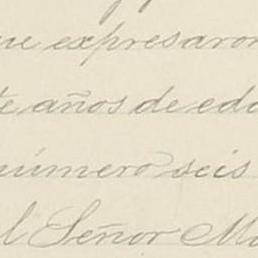 ue expresaron
te años de eda
número seis
l Señor Ma